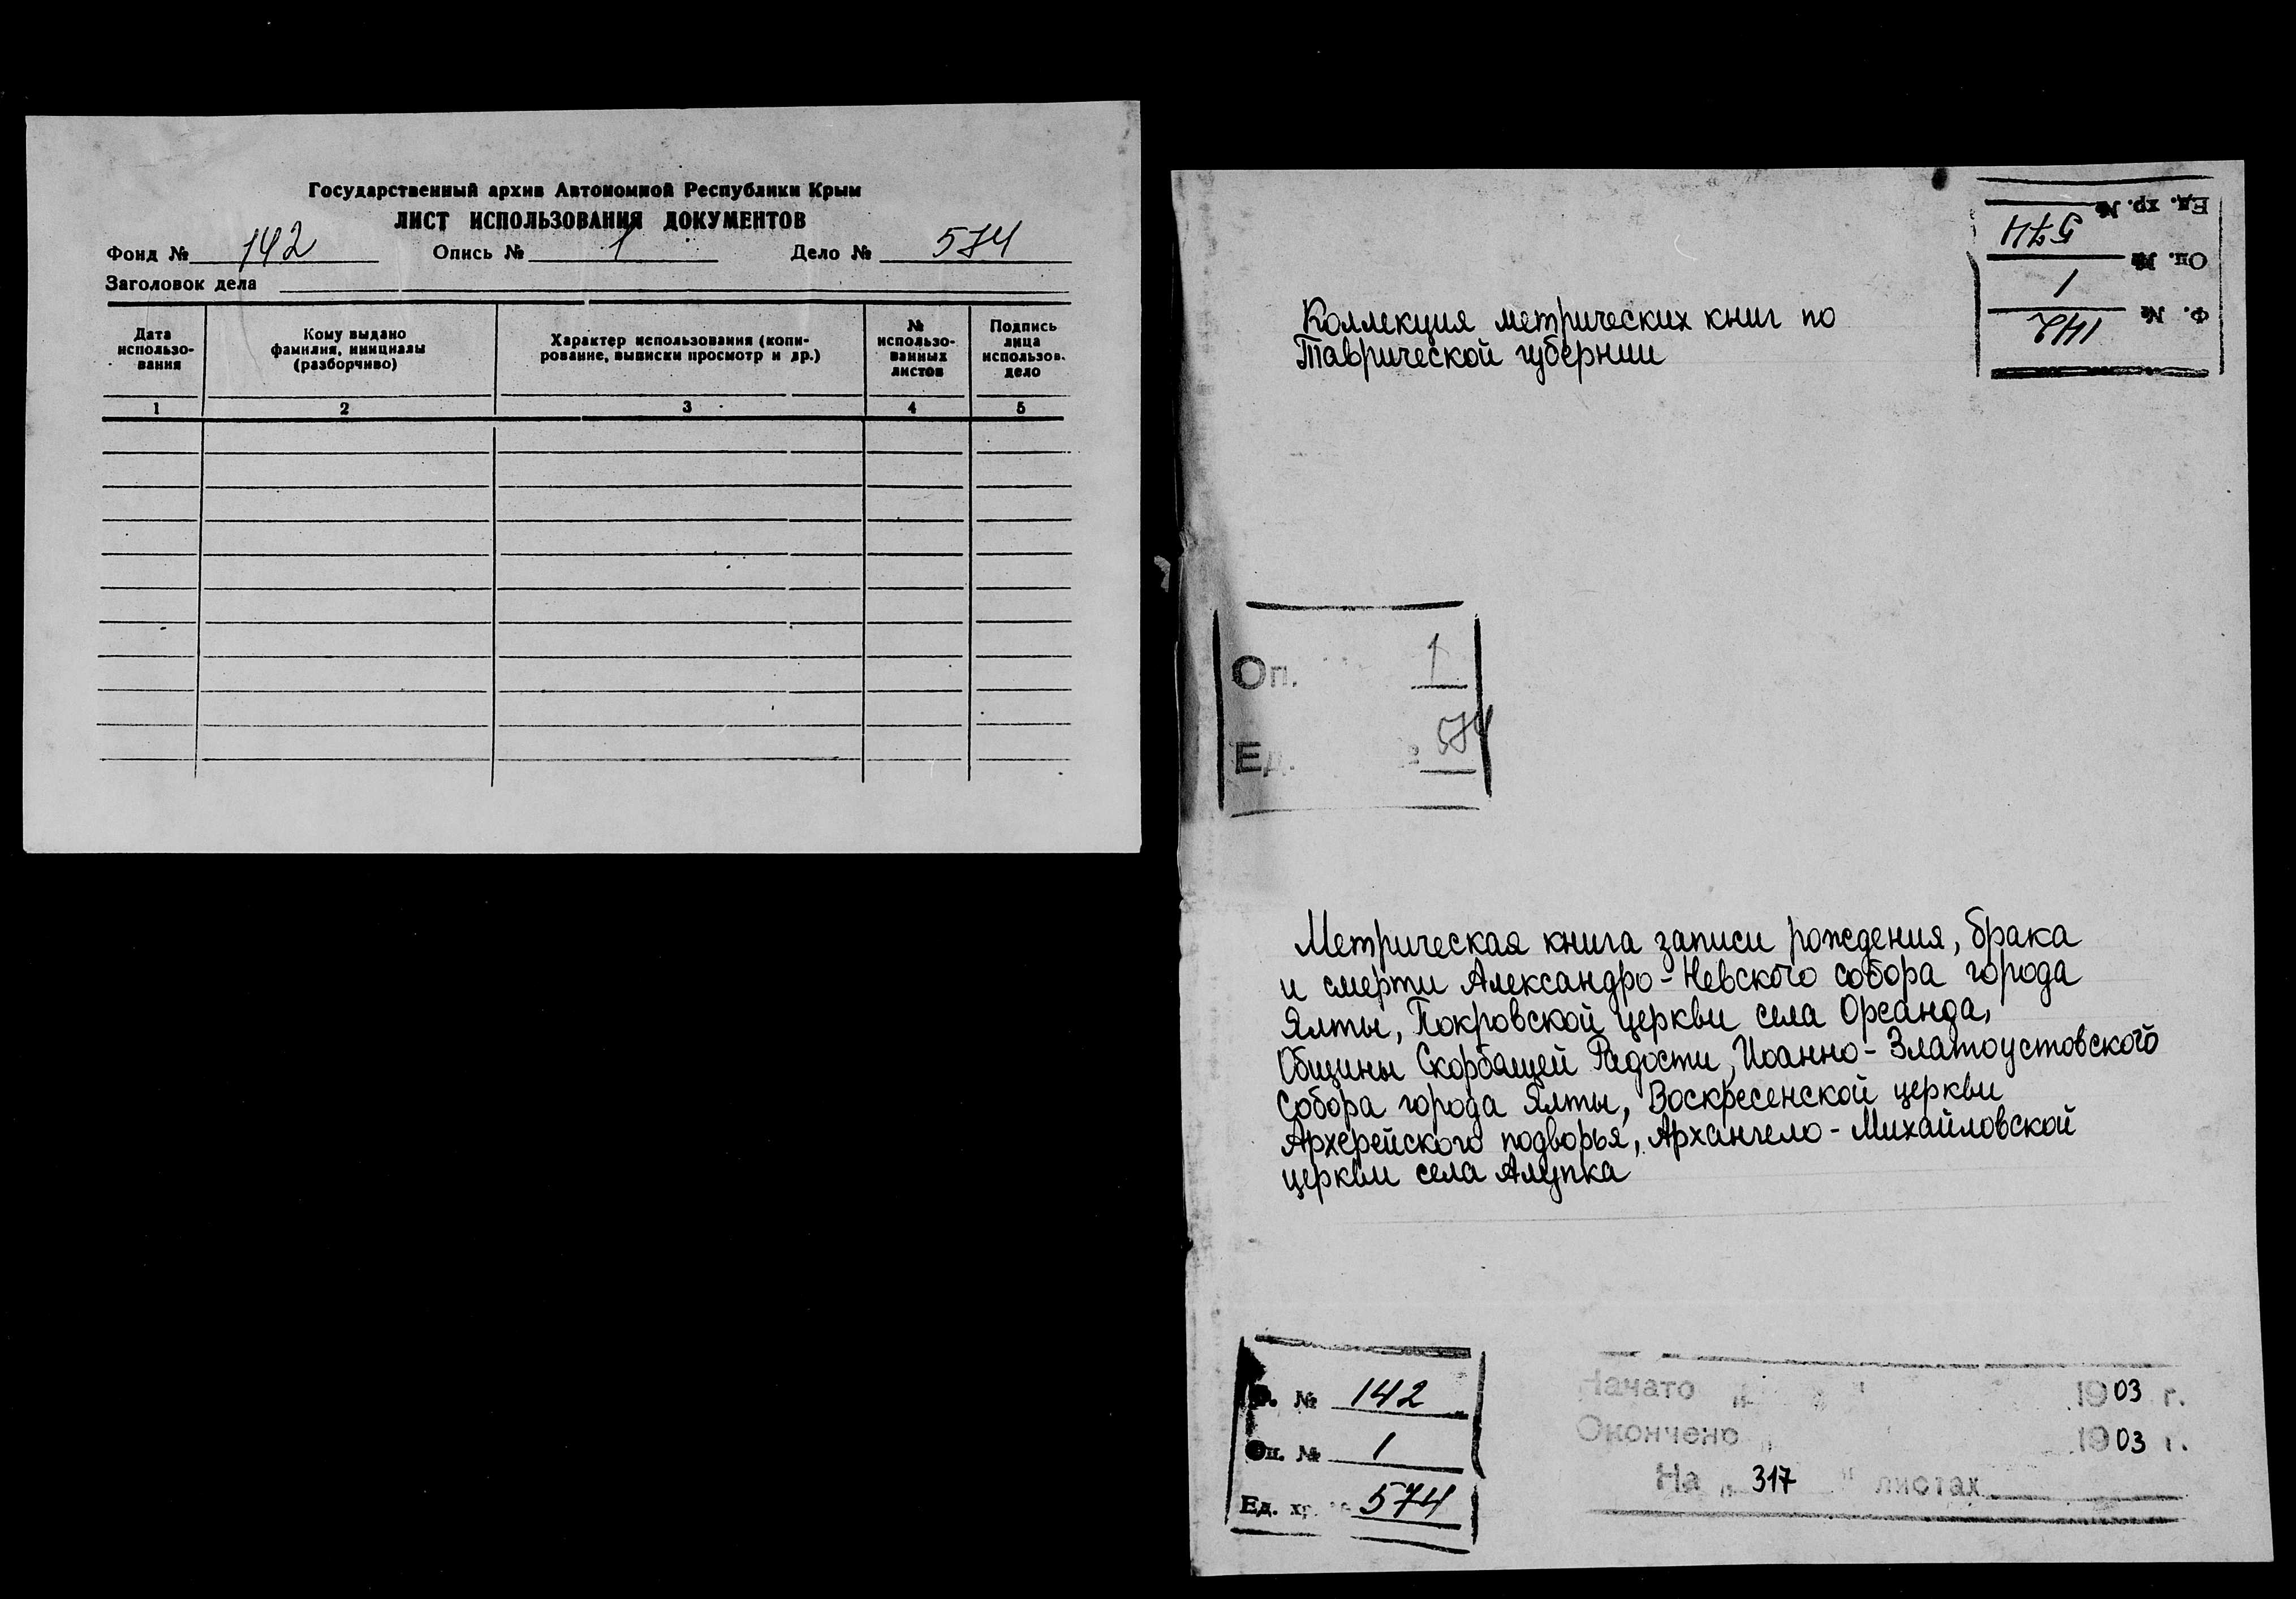 Государственный архив Автономной Республики Крым
ЛИСТ ИСПОЛЬЗОВАНИЯ ДОКУМЕНТОВ
Фонд № 142 Опись № 1 Дело № 574
Заголовок дела
Дата использо-вания
Кому выдано фамилия, инициалы (разборчиво)
Характер использования (копи-рование, выписки просмотр и др.)
№ использо-ванных листов
Подпись лица использов. дело
1 2 3 4 5
Ед. хр. № 574
Оп. № 1
Ф. № 142
Коллекция метрических книг по
Таврической губернии
Оп. 1
Ед. 574
Метрическая книга записи рождения, брака
и смерти Александро-Невского собора города
Ялты, Покровской церкви села Ореанда,
Общины Скорбящей Радости, Иоанно-Златоустовского
Собора города Ялты, Воскресенской церкви
Архерейского подворья, Архангело-Михайловской
церкви села Алупка
Ф. № 142
Оп. № 1
Ед. хр. 574
Начато " " 1903 г.
Окончено " 1903 г.
На " 317 " листах